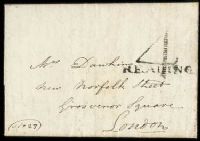 4
READING
Mrs Dawkins
New Norfolk Street
Grosvenor Square
London